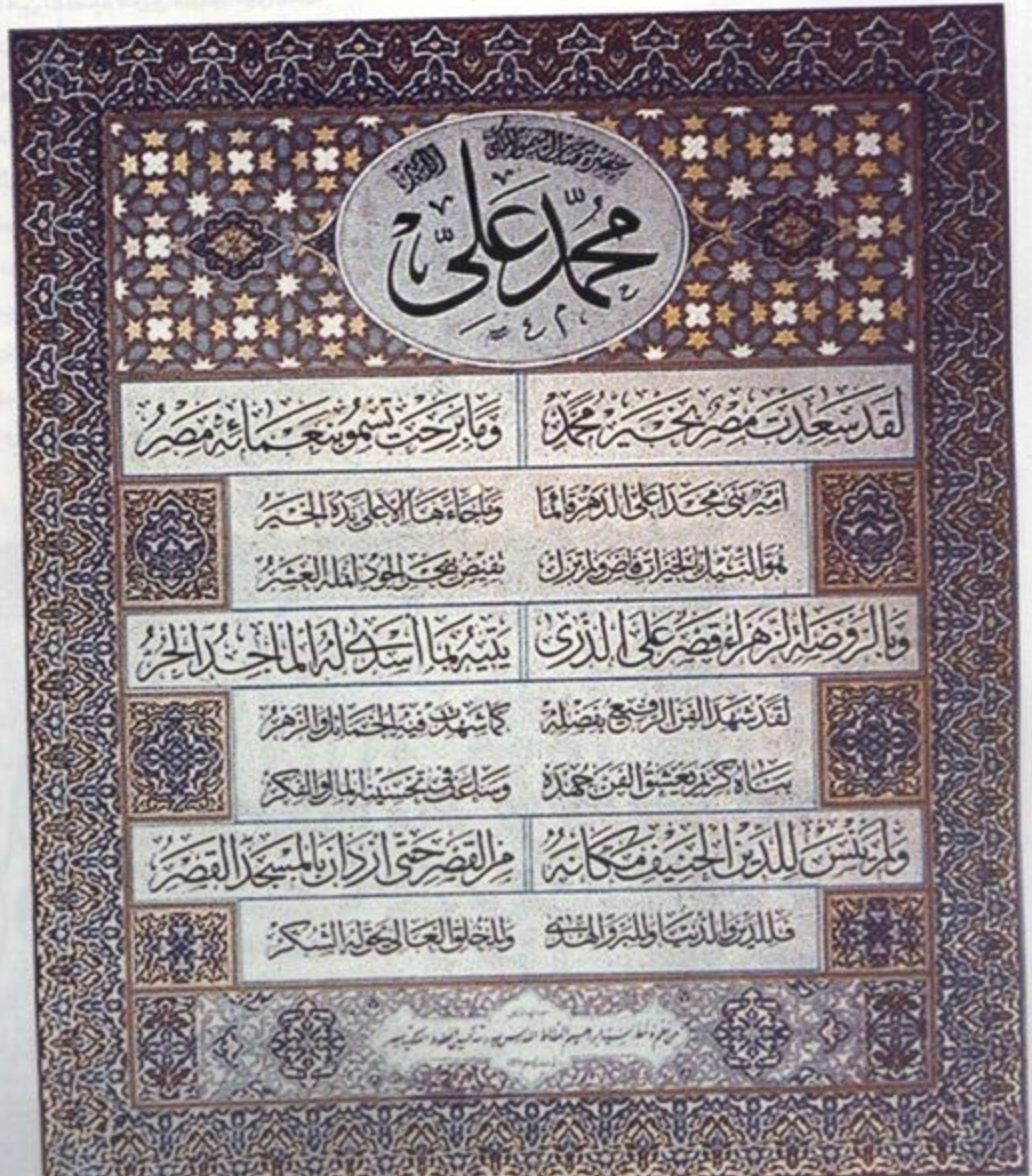 بحضرة صاحب السمو الملكي الأمير
محمد علي
لقد سعدت مصر بخير محمد وما برحت تسمو بنعمائه مصر
أمير بنى مجدا على الدهر قائما وما جاءها إلا على يده الخير
هو النيل بالخيرات فاض ولم تزل تفيض ببحر الجود أنمله العشر
وبالروضة الزهراء قصر على الذرى يتيه بما أسدى له الماجد الحر
لقد شهد الفن الرفيع بفضله كما شهدت فيه الخمائل والزهر
بناه كريم يعشق الفن جهده وساعد في تحسينه المال والفكر
ولم ينس للدين الحنيف مكانه من القصر حتى ازدان بالمسجد القصر
فللدين والدنيا وللبر والهدى وللخلق العالي يحق له الشكر